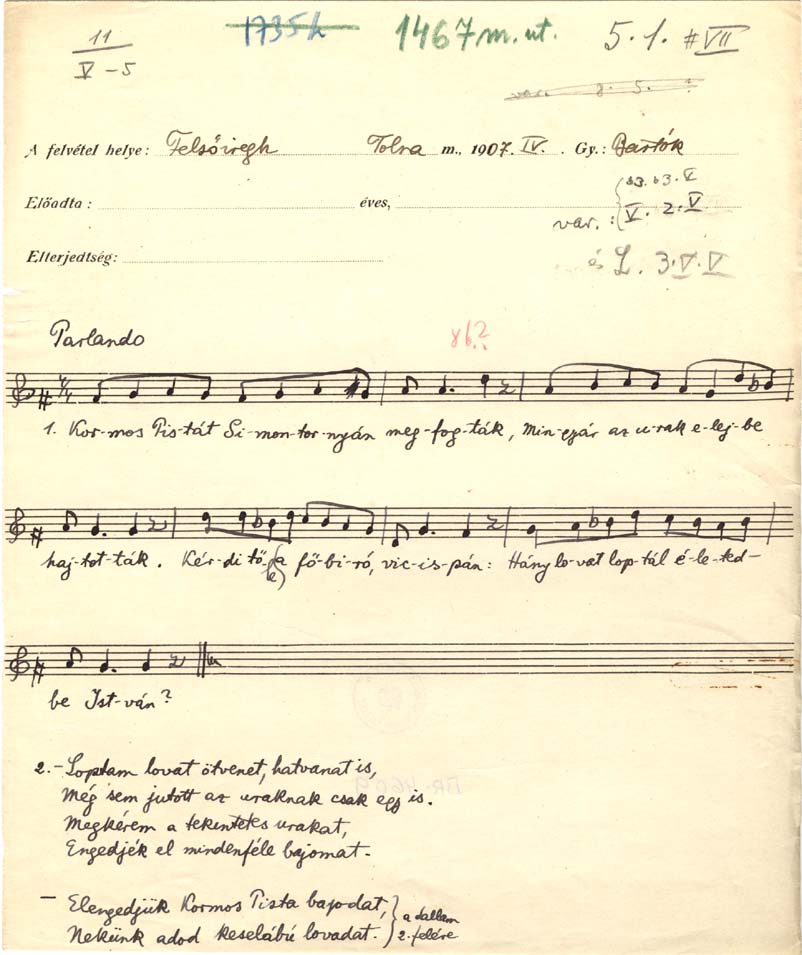 11
V - 5
1735/2
1467 m. ut.
5. 1. # VII
var. 8. 5. ?
A felvétel helye: Felsőiregh Tolna m., 1907. IV. Gy.: Bartók
Előadta: éves,
b3. b3. V
var.: V. 2. V
Elterjedtség:
és L. 3. V. V
Parlando
1. Kor-mos Pis-tát Si-mon-tor-nyán meg-fog-ták, Min-gyár az u-rak e-lej-be
haj-tot-ták. Kér-di tő-(le) a fő-bi-ró, vic-is-pán: Hány lo-vat lop-tál é-le-ted-
be Ist-ván?
2. - Loptam lovat ötvenet, hatvanat is,
Még sem jutott az uraknak csak egy is.
Megkérem a tekintetes urakat,
Engedjék el mindenféle bajomat. -
- Elengedjük Kormos Pista bajodat,
Nekünk adod keselábú lovadat. -
a dallam
2. felére